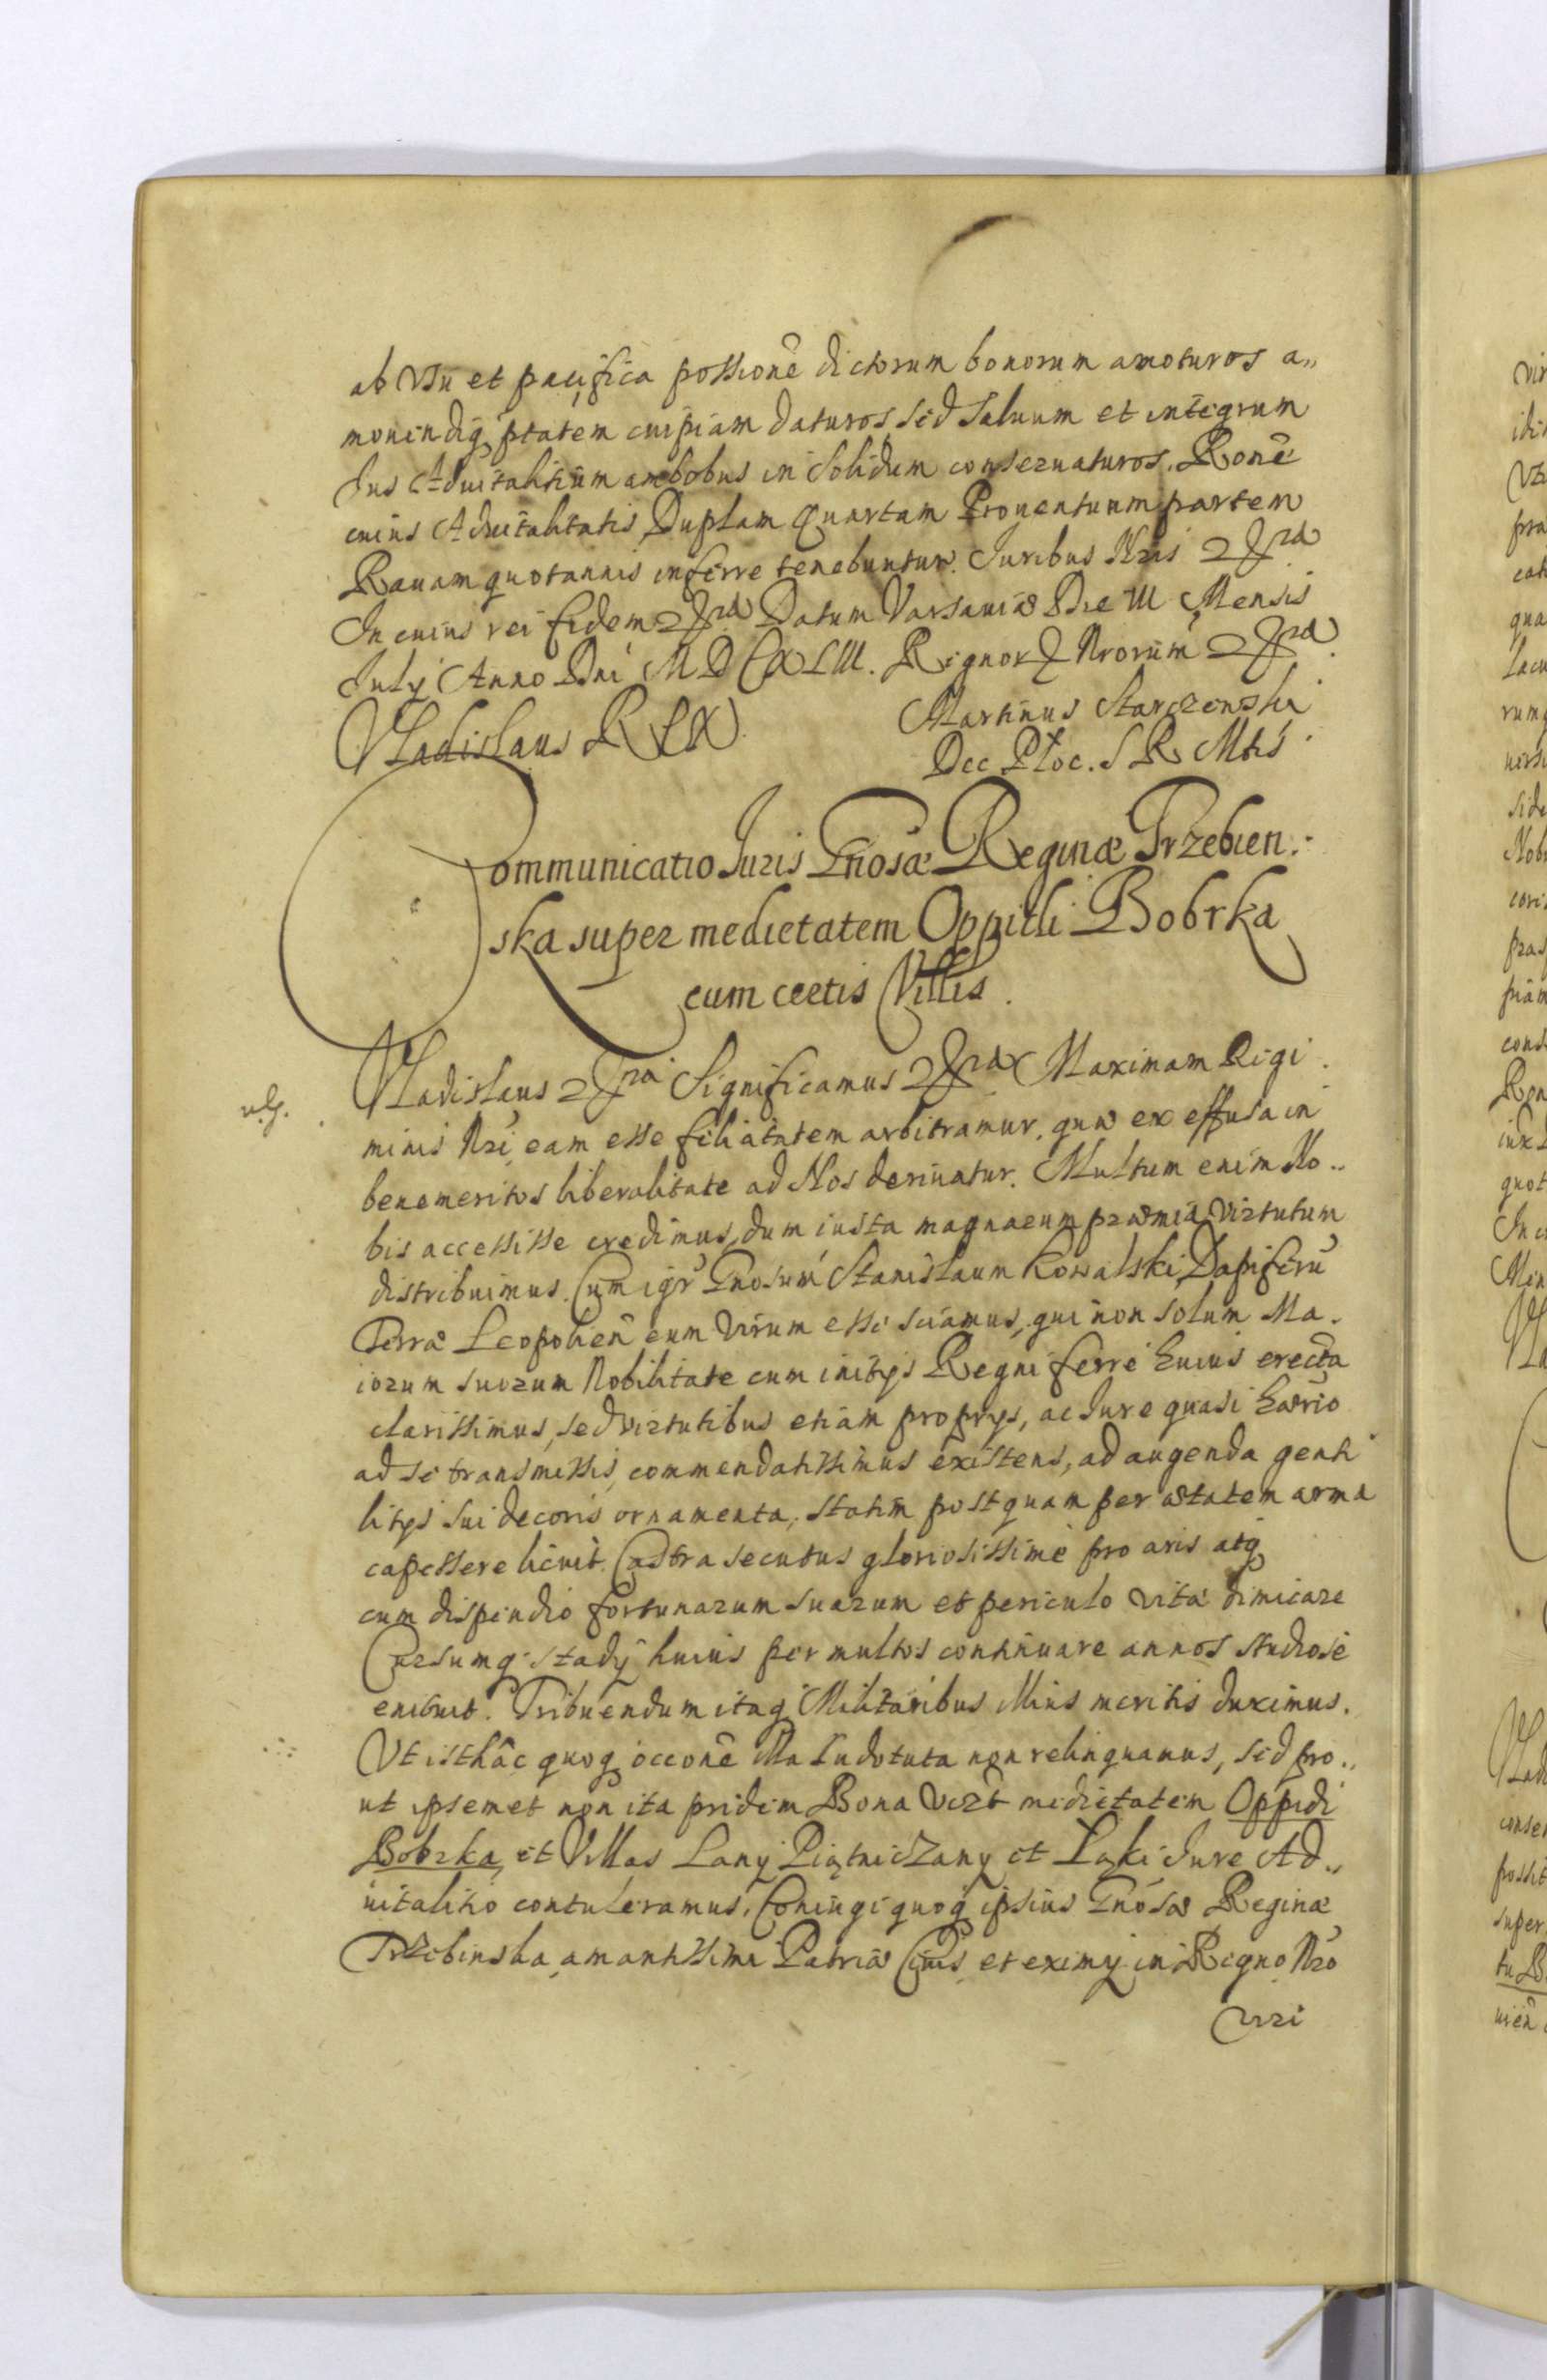 ab Vsu et pacifica possione dictorum bonorum amoturos a„
monendiq, ptatem cuipiam daturos sed saluum et integrum
Jus Aduitalitium ambobus in solidum conseruaturos. Rone
cuius Aduitalitatis Duplam Quartam Prouentuum partem
Rauam quotannis inferre tenebuntur. Juribus Nris
In cuius rei fidem Datum Varsauiæ Die III Mensis
July Anno Dni M D C XLIII. Regnor Nrorum
Vladislaus REX Martinus Starczenski
Dec Ploc. S R Mtis
Communicatio Juris Gnosæ Reginæ Trzebien.
ska super medietatem Oppidi Bobrka
cum cetis Villis.
Vladislaus Significamus Maximam Regi.
minis Nri eam esse arbitramur, quæ ex effusa in
benemeritos liberalitate ad Nos deriuatur. Multum enim No„
bis accessisse credimus, dum iusta magnarum præmia Virtutum
distribuimus. Cum igr Gnosum Stanislaum Kowalski Dapiferu
Terræ Leopolien eum Virum esse sciamus, qui non solum Ma.
iorum suorum Nobilitate cum initys Regni ferre huius erecta
clarissimus, sed virtutibus etiam proprys, ac Jure quasi hærio
ad se transmissis, commendatissimus existens, ad augenda genti
litys sui decoris ornamenta, statim postquam per ætatem arma
capessere licuit. Castra secutus gloriosissime pro aris atq
cum dispendio fortunarum suarum et periculo vitæ dimicare
Cursumq stady huius per multos continuare annos studiose
enituit. Tribuendum itaq Militaribus illius meritis duximus.
Vt isthac quoq occone relinquamus, sed pro„
ut ipsemet non ita pridem Bona vizt medietatem Oppidi
Bobrka, et Villas Lany Piątniczany et Łąki Jure Ad„
uitalitio contuleramus, Coniugi quoq ipsius Gnosæ Reginæ
Trzebinska, amantissimi Patriæ Ciuis et eximy in Regno Nro
Viri